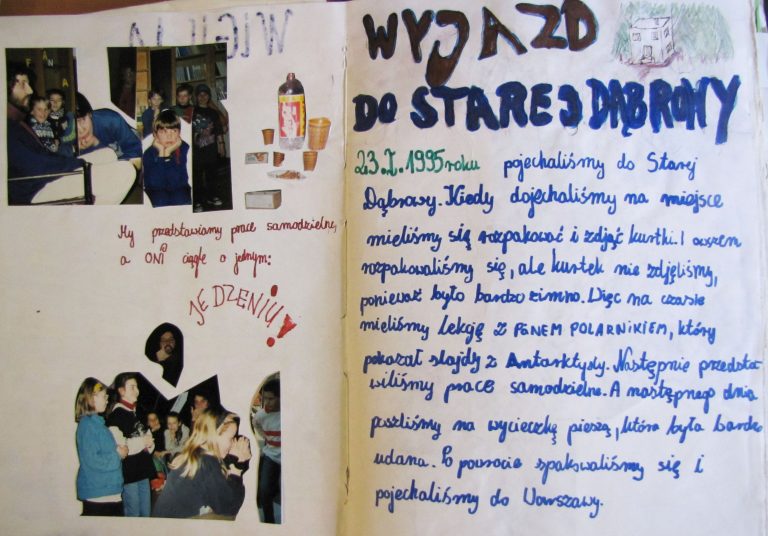 My przedstawiamy prace samodzielne,
a ONI ciągle o jednym:
JEDZENIU!
WYJAZD
DO STAREJ DĄBROWY
23.I.1995 roku pojechaliśmy do Starej
Dąbrowy. Kiedy dojechaliśmy na miejsce
mieliśmy się rozpakować i zdjąć kurtki. I owszem
rozpakowaliśmy się, ale kurtek nie zdjęliśmy,
ponieważ było bardzo zimno. Więc na czasie
mieliśmy lekcję z PANEM POLARNIKIEM, który
pokazał slajdy z Antarktydy. Następnie przedsta
wiliśmy prace samodzielne. A następnego dnia
poszliśmy na wycieczkę pieszą, która była bardzo
udana. Po powrocie spakowaliśmy się i
pojechaliśmy do Warszawy.